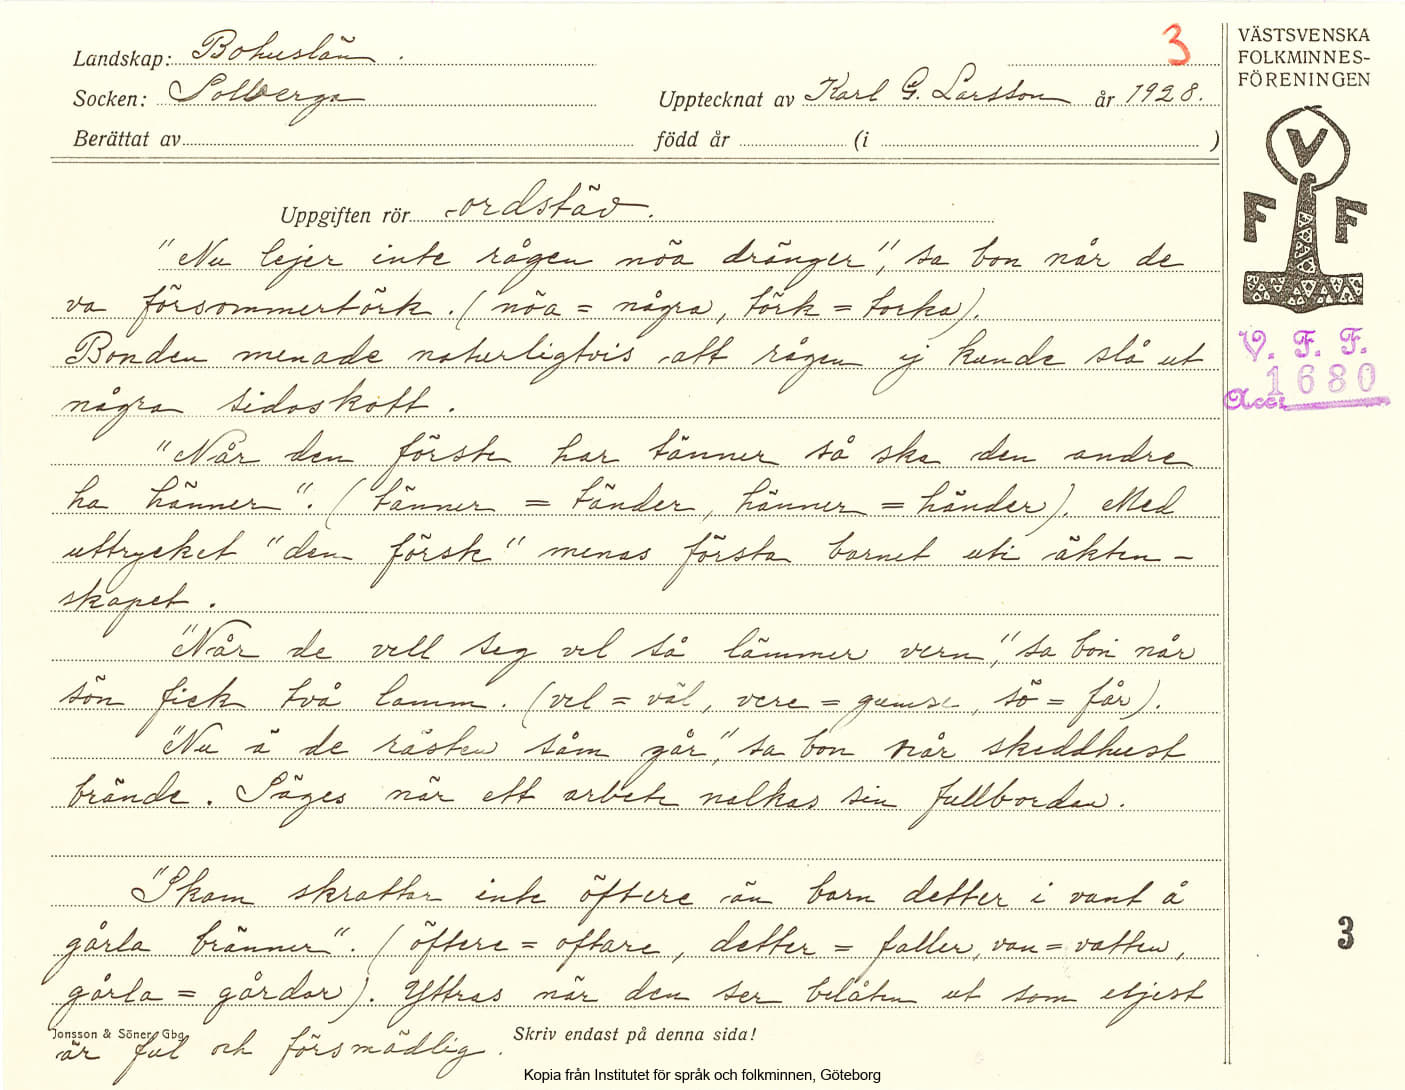 Landskap: Bohuslän.
3
Socken: Solberga
Upptecknat av Karl G. Larsson år 1928.
Berättat av
född år (i )
VÄSTSVENSKA
FOLKMINNES-
FÖRENINGEN
V
F F
V. F. F.
Acc: 1680
Uppgiften rör ordstäv.
"Nu lejer inte rågen nöa dränger", sa bon når de
va försommertörk. (nöa = några, törk = torka).
Bonden menade naturligtvis att rågen ej kunde slå ut
några sidoskott.
"Når den förste har tänner så ska den andre
ha hänner". (tänner = tänder, hänner = händer). Med
uttrycket "den förste" menas första barnet uti äkten-
skapet.
"Når de vell seg vel så lämmer vern", sa bon når
sön fick två lamm. (vel = väl, vere = gumse, sö = får).
"Nu ä de rästen såm går", sa bon når skeddhust
brände. Säges när ett arbete nalkas sin fullbordan.
"Skam skrattar inte öftere än barn detter i vant å
gårla bränner". (öftere = oftare, detter = faller, van = vatten,
gårla = gårdar). Yttras när den ser belåten ut som
är ful och försmädlig.
3
Jonsson & Söner, Gbg
Skriv endast på denna sida!
Kopia från Institutet för språk och folkminnen, Göteborg